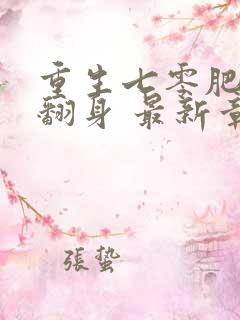 重生七零肥
翻身 最新章
張蟄